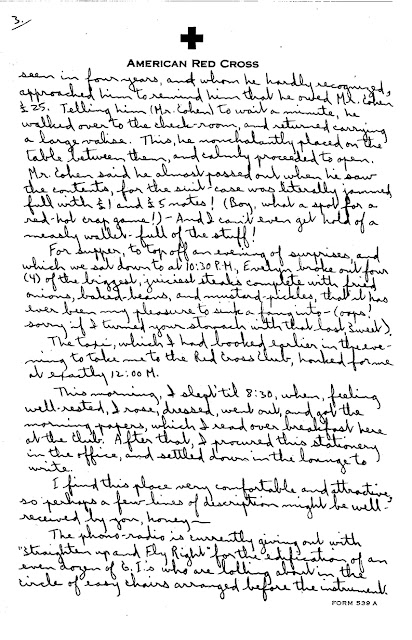 3.
AMERICAN RED CROSS
seen in four years, and whom he hardly recognized,
approached him to remind him that he owed Mr. Cohen
£25. Telling him (Mr. Cohen) to wait a minute, he
walked over to the check-room, and returned carrying
a large valise. This, he nonchalantly placed on the
table between them, and calmly proceeded to open.
Mr. Cohen said he almost passed out when he saw
the contents, for the suit-case was literally jammed
full with £1 and £5 notes! (Boy, what a spot for a
red-hot crap game!) - And I can't even get hold of a
measly wallet-full of the stuff!
For supper, to top off an evening of surprises, and
which we sat down to at 10:30 P.M., Evelyn broke out four
(4) of the biggest, juiciest steaks complete with fried
onions, baked-beans, and mustard-pickles, that it has
ever been my pleasure to sink a fang into - (oops!
sorry if I turned your stomach with that last, sweet).
The taxi, which I had booked earlier in the eve-
ning to take me to the Red Cross Club, honked for me
at exactly 12:00 M.
This morning, I slept 'til 8:30, when, feeling
well-rested, I rose, dressed, went out, and got the
morning papers, which I read over breakfast here
at the Club. After that, I procured this stationery
in the office, and settled down in the lounge to
write.
I find this place very comfortable and attractive,
so perhaps a few lines of description might be well-
received by you, honey —
The phono-radio is currently giving out with
"Straighten up and Fly Right" for the edification of an
even dozen of G.I.s who are lolling about in the
circle of easy chairs arranged before the instrument.
FORM 539 A